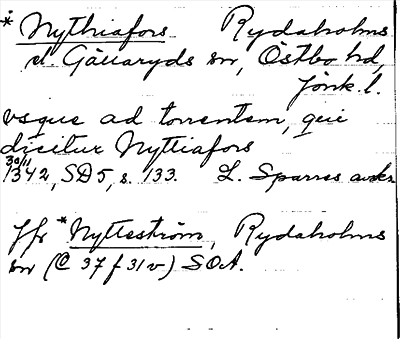 * Nythiafors Rydaholms
el. Gällaryds sn, Östbo hd,
Jönk. l.
usque ad torrentem, qui
dicitur Nythiafors
30/11
1342, SD 5, s. 133. L. Sparres avskr
Jfr *Nytteström, Rydaholms
sn (C 37 f 31 v) SOA.